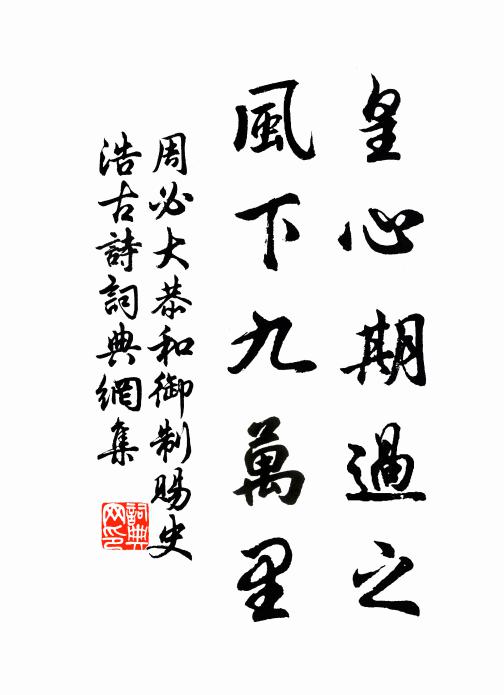 皇心期過之
風下九萬里
周必大恭和御制賜史
浩古詩詞典網集
詞典网印